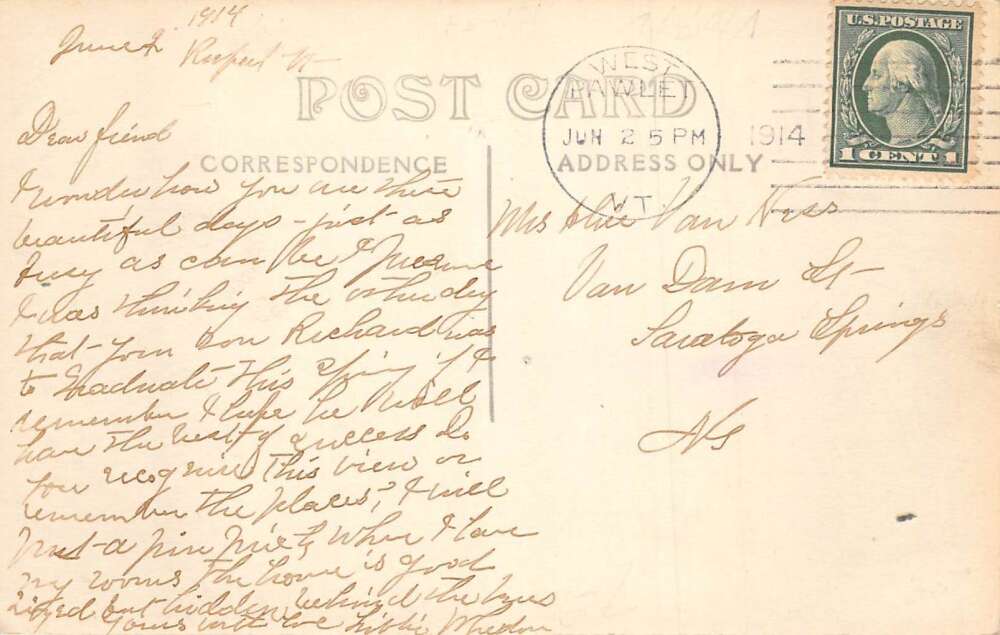 June 2 1914
Rupert Vt
POST CARD
CORRESPONDENCE
ADDRESS ONLY
WEST PAWLET
JUN 2 5 PM 1914
VT.
U.S. POSTAGE
1 CENT 1
Dear friend
I wonder how you are these
beautiful days - just as
busy as can be I presume
I was thinking the other day
that your son Richard was
to Graduate this Spring if I
remember I hope he will
have the best of success Do
you recognize this view or
remember the places? I will
put a pin prick where I have
my rooms the house is good
sized but hidden behind the trees
Yours with love Libbie Whedon
Mrs Van Ness
Van Dam St
Saratoga Springs
NY